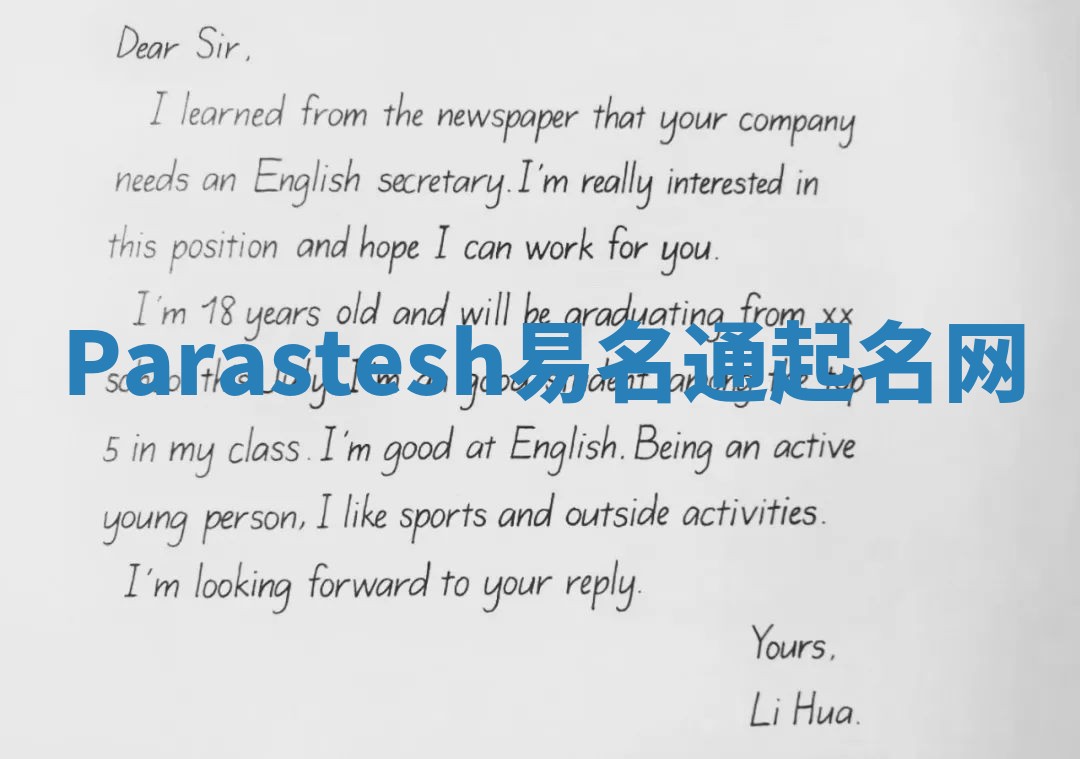 Dear Sir,
I learned from the newspaper that your company
needs an English secretary. I'm really interested in
this position and hope I can work for you.
I'm 18 years old and will be graduating from xx
Parastesh易名通起名网
school this July. I'm a good student among the top
5 in my class. I'm good at English. Being an active
young person, I like sports and outside activities.
I'm looking forward to your reply.
Yours,
Li Hua.